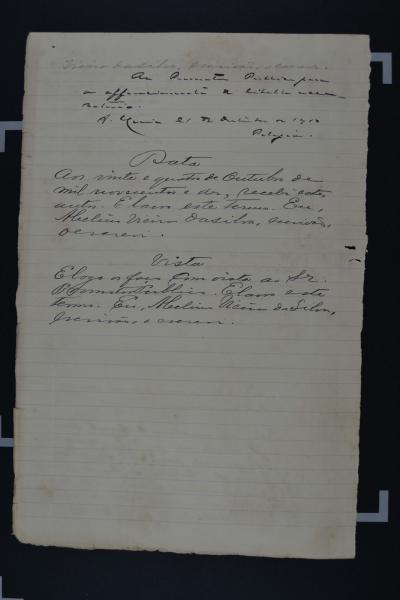 Vieira da Silva, escrivão, o escrevi.
Ao Promotor Publico para
o offerecimento de libello accu-
satorio.
21 de Outubro de 1910
Data
Aos vinte e quatro de Outubro de
mil novecentos e dez, recebi estes
autos. E lavro este termo. Eu,
Vieira da Silva, escrivão,
o escrevi.
Vista
E logo os faço com vista ao Sr.
Promotor Publico. E lavro este
termo. Eu, Vieira da Silva,
escrivão, o escrevi.